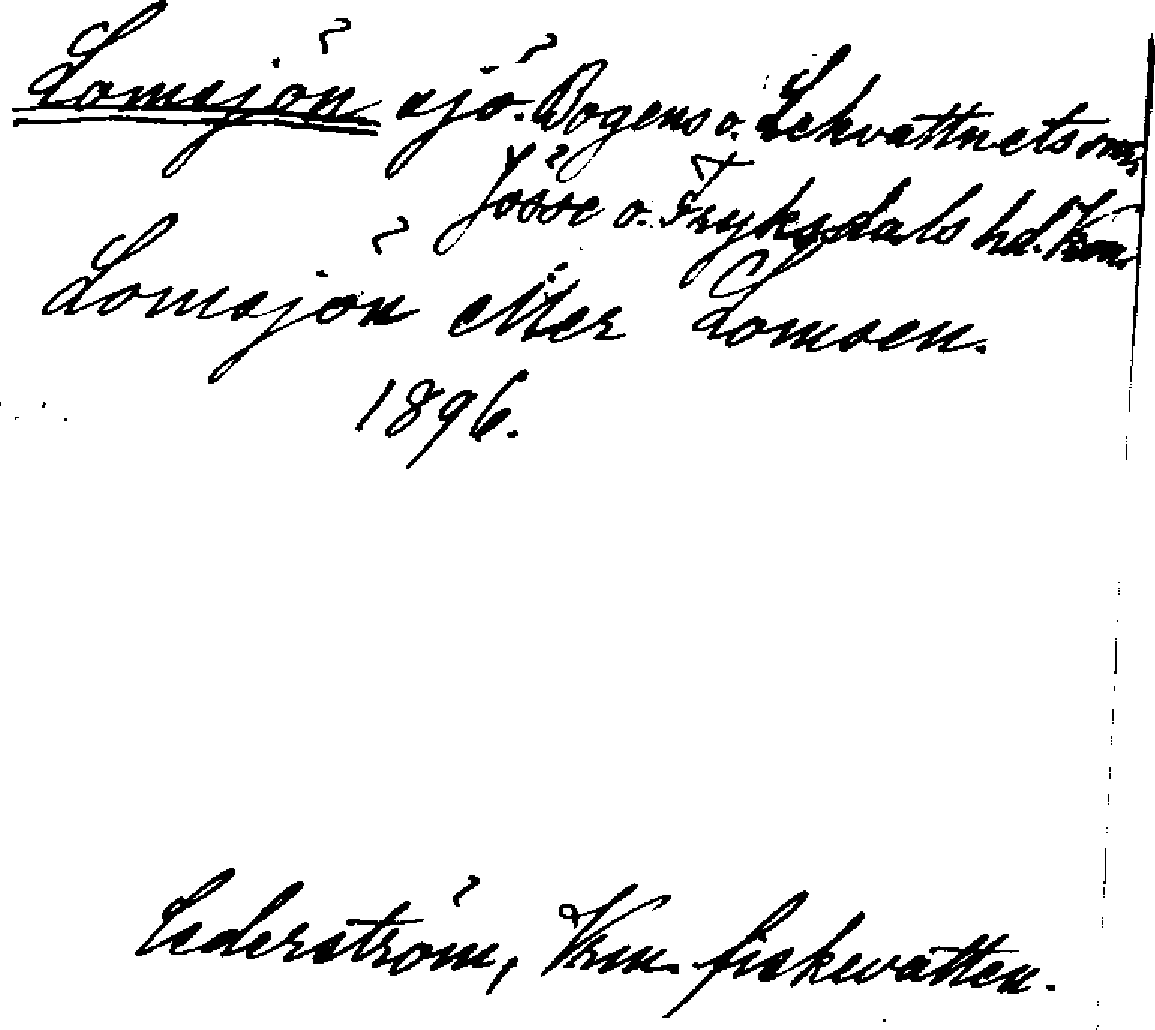 Lomsjön sjö. Bogens o. Lekvattnets snr,
Jösse o. Fryksdals hd. Vrm.
Lomsjön eller Lomsen.
1896.
Cederström, Vrm. fiskevatten.